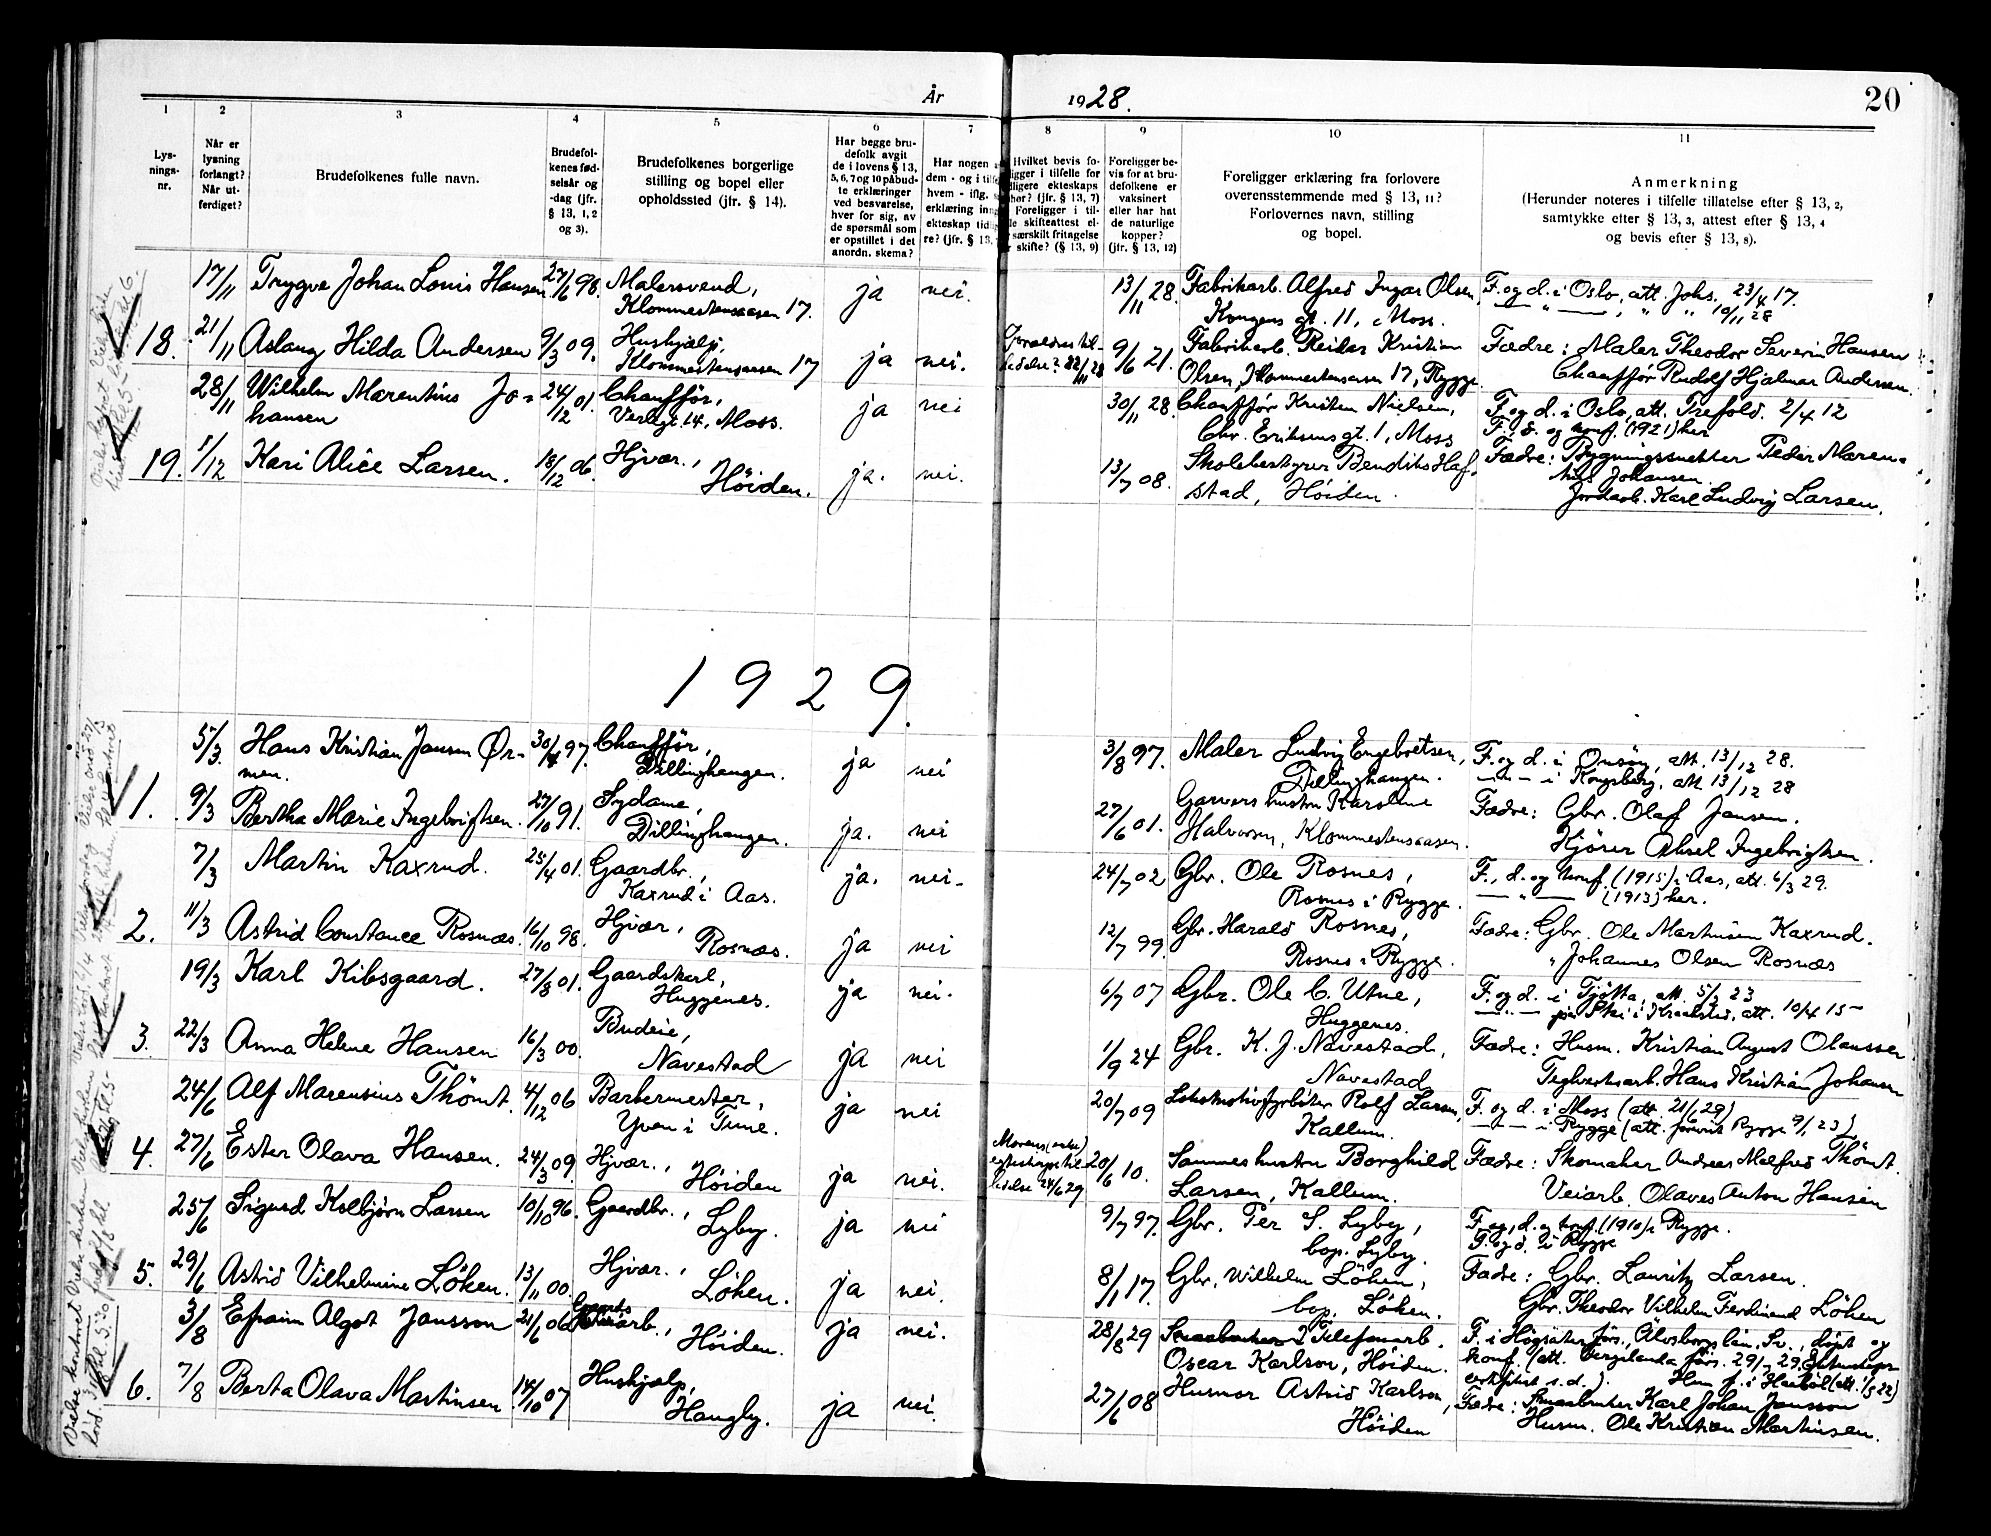 År 1928.
20
1
2
3
4
5
6
7
8
9
10
11
Lys-
nings-
nr.
Når er
lysning
forlangt?
Når ut-
ferdiget?
Brudefolkenes fulle navn.
Brudefol-
kenes fød-
selsår og
-dag (jfr.
§ 13, 1, 2
og 3).
Brudefolkenes borgerlige
stilling og bopel eller
opholdssted (jfr. § 14).
Har begge bru-
defolk avgit
de i lovens § 13,
5, 6, 7 og 10 påbud-
te erklæringer
ved besvarelse,
hver for sig, av
de spørsmål som
er opstillet i det
anordn. skema?
Har nogen
dem - og i tilf
hvem - iflg.
erklæring inng
ekteskap tidl
re? (jfr. § 13,
Hvilket bevis fo-
ligger i tilfelle for
dligere ekteskaps
hør? (jfr. § 13, 7)
Foreligger i til-
le skifteattest el-
særskilt fritagelse
skifte? (§ 13, 9)
Foreligger be-
vis for at bru-
defolkene er
vaksinert
eller har hat
de naturlige
kopper?
(jfr. § 13, 12)
Foreligger erklæring fra forlovere
overensstemmende med § 13, 11?
Forlovernes navn, stilling
og bopel.
Anmerkning
(Herunder noteres i tilfelle tillatelse efter § 13, 2,
samtykke efter § 13, 3, attest efter § 13, 4
og bevis efter § 13, 8).
17/11 Trygve Johan Louis Hansen 27/6 98. Malersvend,
Klommestensaasen 17. ja nei.
13/11 28. Fabrikarb. Alfred Ingar Olsen,
Kongens gt. 11, Moss.
F. og d. i Oslo, att. Johs. 23/4 17.
— " — , " " 10/11 28
18. 21/11 Aslaug Hilda Andersen 9/3 09. Hushjælp,
Klommestensaasen 17 ja nei.
Foreldres til-
ladelse 22/11 28
9/6 21. Fabrikarb. Reidar Kristian
Olsen, Klommestensaasen 17, Rygge.
Fædre: Maler Theodor Severin Hansen
Chauffør Rudolf Hjalmar Andersen.
28/11 Wilhelm Marentius Jo-
hansen 24/12 01. Chauffør,
Verlegt. 14, Moss. ja nei
30/11 28. Chauffør Kristen Nielsen,
Chr. Eriksens gt. 1, Moss
F. og d. i Oslo, att. Trefold. 2/4 12
F., d. og konf. (1921) her
19. 1/12 Kari Alice Larsen. 18/12 06. Hjvær.,
Höiden. ja. nei.
13/7 08. Skolebestyrer Bendiks Haf-
stad, Höiden.
Fædre: Bygningssnekker Peder Maren-
tius Johansen.
Jordarb. Karl Ludvig Larsen.
1929.
5/3 Hans Kristian Jansen Ør-
men. 30/4 97. Chauffør,
Dillinghaugen. ja nei
3/8 97. Maler Ludvig Engebretsen,
Dillinghaugen.
F. og d. i Onsöy, att. 13/12 28.
— " — i Kongsberg, att. 13/12 28
1. 9/3 Bertha Marie Ingebrigtsen. 27/10 91. Sydame,
Dillinghaugen. ja. nei
27/6 01. Garvers hustru Karoline
Halvorsen, Klommestensaasen.
Fædre: Gbr. Olaf Jansen.
Kjörer Aksel Ingebrigtsen.
7/3 Martin Kaxrud. 25/4 01. Gaardbr.,
Kaxrud i Aas. ja. nei.
24/7 02 Gbr. Ole Rosnes,
Rosnes i Rygge.
F., d. og konf. (1915) i Aas, att. 6/3 29.
— " — (1913) her.
2. 11/3 Astrid Constance Rosnæs. 16/10 98. Hjvær.,
Rosnæs. ja nei
12/7 99. Gbr. Harald Rosnes,
Rosnes i Rygge.
Fædre: Gbr. Ole Martinsen Kaxrud.
" Johannes Olsen Rosnæs
19/3 Karl Kibsgaard. 27/8 01. Gaardskarl,
Huggenes. ja nei.
6/7 07 Gbr. Ole C. Utne,
Huggenes.
F. og d. i Tjötta, att. 5/2 23
— " — på Ski i Kraakstad, att. 10/4 15
3. 22/3 Anna Helene Hansen 16/3 00. Budeie,
Navestad ja nei
1/9 24 Gbr. K. J. Navestad,
Navestad
Fædre: Husm. Kristian August Olaussen
Teglverksarb. Hans Kristian Johansen
24/6 Alf Marensius Thömt. 4/12 06 Barbermester,
Yven i Tune. ja nei
20/7 09 Lokomotivfyrböter Rolf Larsen,
Kallum.
F. og d. i Moss (att. 21/6 29)
— " — i Rygge (att. Rygge 9/1 23)
4. 27/6 Ester Olava Hansen. 24/3 09. Hjvær.,
Höiden ja nei.
Morens (enke)
egteskapstil-
ladelse 24/6 29
20/6 10. Sammes hustru Borghild
Larsen, Kallum.
Fædre: Skomaker Andreas Melfred Thömt.
Veiarb. Olaves Anton Hansen
25/6 Sigurd Kolbjørn Larsen 10/10 96. Gaardbr.,
Lyby. ja nei
9/7 97. Gbr. Per S. Lyby,
bop. Lyby.
F., d. og konf. (1910) i Rygge.
F. og d. i Rygge
5. 29/6 Astrid Vilhelmine Löken. 13/11 00. Hjvær.,
Löken. ja nei.
8/1 17. Gbr. Wilhelm Löken,
bop. Löken.
Fædre: Gbr. Lauritz Larsen.
Gbr. Theodor Vilhelm Ferdinand Löken
3/8 Efraim Algot Jansson 21/6 06 Gaardsarb.,
Höiden. ja nei.
28/8 29 Telefonarb.
Oscar Karlson, Höiden.
F. i Högsäter förs., Älvsborgs län, Sv., döpt og
konf. (att. Färgelanda förs. 29/7 29. Ekteskaps-
certifikat s.d.). Hun f. i Haaböl (att. 1/5 22)
6. 7/8 Berta Olava Martinsen 14/10 07 Hushjælp,
Haugby. ja nei.
27/6 08 Husmor Astrid Karlson,
Höiden
Fædre: Smaabruker Karl Johan Jansson
Husm. Ole Kristian Martinsen.